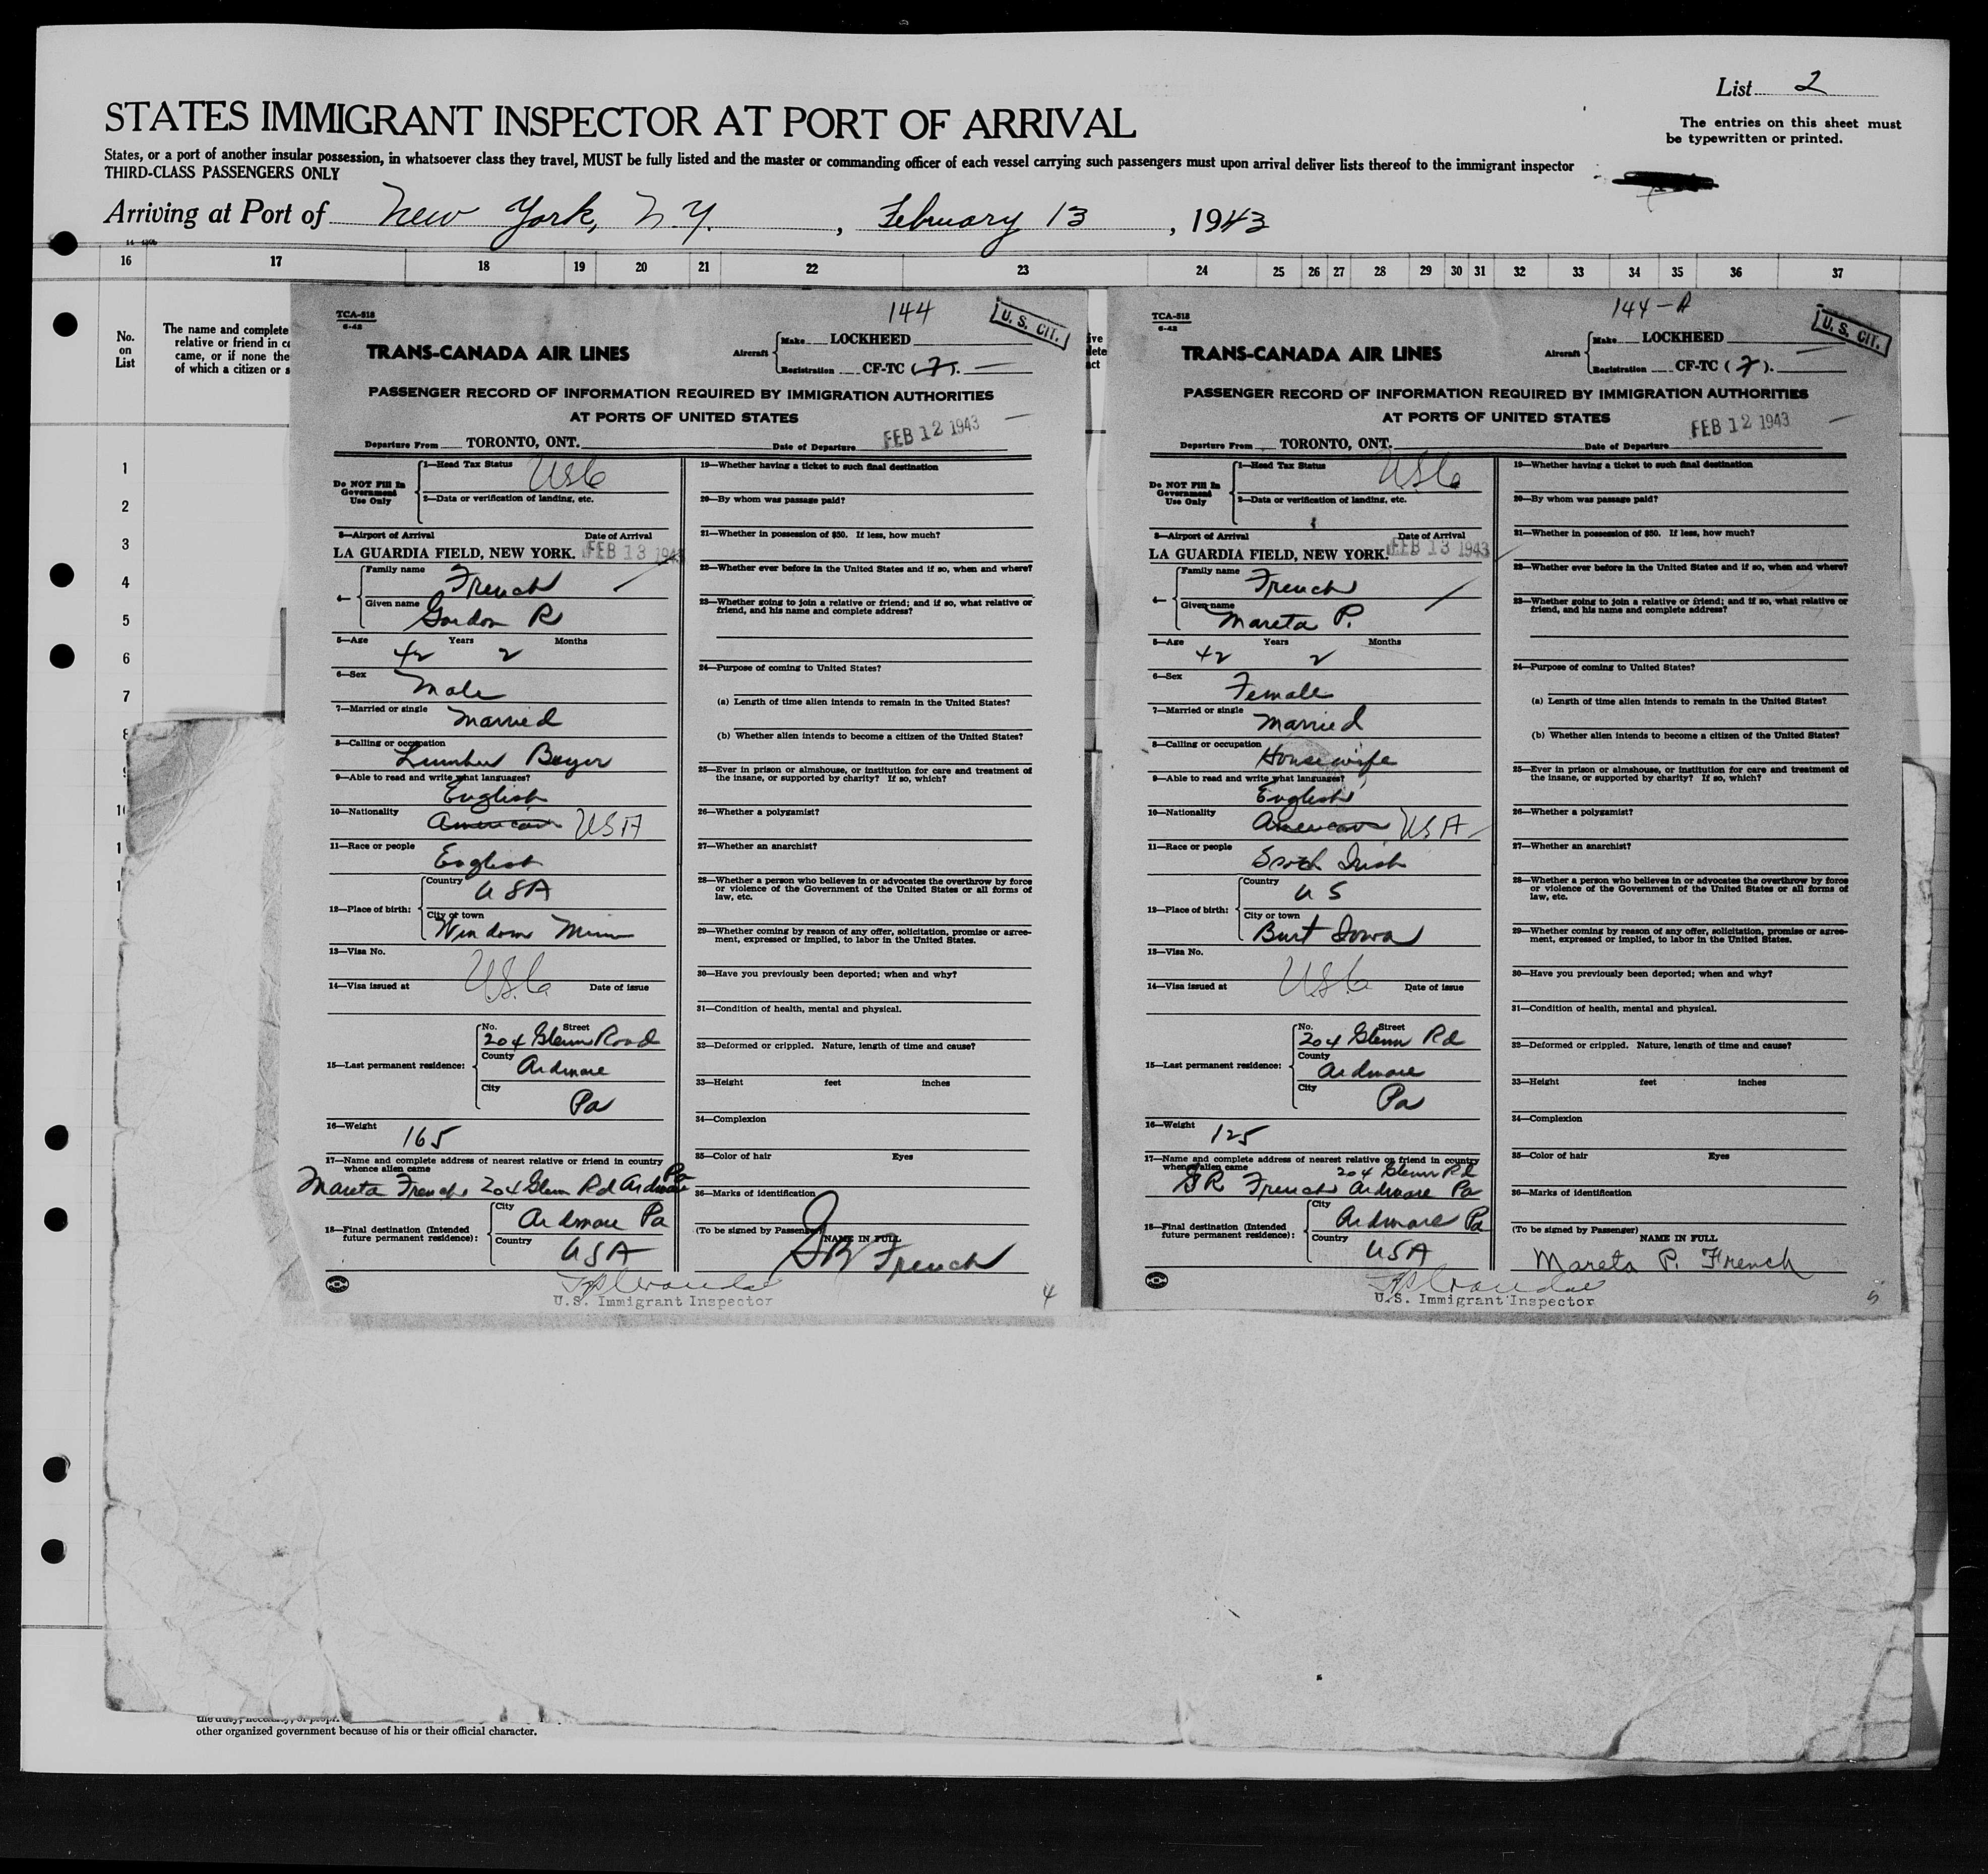 List 2
STATES IMMIGRANT INSPECTOR AT PORT OF ARRIVAL
The entries on this sheet must
be typewritten or printed.
States, or a port of another insular possession, in whatsoever class they travel, MUST be fully listed and the master or commanding officer of each vessel carrying such passengers must upon arrival deliver lists thereof to the immigrant inspector
THIRD-CLASS PASSENGERS ONLY
Arriving at Port of New York, N.Y., February 13, 1943
16 17 18 19 20 21 22 23 24 25 26 27 28 29 30 31 32 33 34 35 36 37
No.
on
List
The name and complete
relative or friend in
came, or if none the
of which a citizen or s
1
2
3
4
5
6
7
8
144
U. S. CIT.
TCA-518
6-42
TRANS-CANADA AIR LINES
Aircraft
Make LOCKHEED
Registration CF-TC (7).
PASSENGER RECORD OF INFORMATION REQUIRED BY IMMIGRATION AUTHORITIES
AT PORTS OF UNITED STATES
Departure From TORONTO, ONT. Date of Departure FEB 12 1943
Do NOT Fill In
Government
Use Only
1—Head Tax Status USC
2—Data or verification of landing, etc.
3—Airport of Arrival Date of Arrival
LA GUARDIA FIELD, NEW YORK. FEB 13 1943
4—
Family name French
Given name Gordon R
5—Age 42 Years 2 Months
6—Sex Male
7—Married or single Married
8—Calling or occupation Lumber Buyer
9—Able to read and write what languages?
English
10—Nationality American USA
11—Race or people English
12—Place of birth:
Country USA
City or town
Windom Minn
13—Visa No.
14—Visa issued at USC Date of issue
15—Last permanent residence:
No. Street
204 Glenn Road
County Ardmore
City Pa
16—Weight 165
17—Name and complete address of nearest relative or friend in country
whence alien came
Mareta French 204 Glenn Rd Ardmore Pa
18—Final destination (Intended
future permanent residence):
City Ardmore Pa
Country USA
19—Whether having a ticket to such final destination
20—By whom was passage paid?
21—Whether in possession of $50. If less, how much?
22—Whether ever before in the United States and if so, when and where?
23—Whether going to join a relative or friend; and if so, what relative or
friend, and his name and complete address?
24—Purpose of coming to United States?
(a) Length of time alien intends to remain in the United States?
(b) Whether alien intends to become a citizen of the United States?
25—Ever in prison or almshouse, or institution for care and treatment of
the insane, or supported by charity? If so, which?
26—Whether a polygamist?
27—Whether an anarchist?
28—Whether a person who believes in or advocates the overthrow by force
or violence of the Government of the United States or all forms of
law, etc.
29—Whether coming by reason of any offer, solicitation, promise or agree-
ment, expressed or implied, to labor in the United States.
30—Have you previously been deported; when and why?
31—Condition of health, mental and physical.
32—Deformed or crippled. Nature, length of time and cause?
33—Height feet inches
34—Complexion
35—Color of hair Eyes
36—Marks of identification
(To be signed by Passenger)
NAME IN FULL
G R French
U.S. Immigrant Inspector
4
144-A
U. S. CIT.
TCA-518
6-42
TRANS-CANADA AIR LINES
Aircraft
Make LOCKHEED
Registration CF-TC (7).
PASSENGER RECORD OF INFORMATION REQUIRED BY IMMIGRATION AUTHORITIES
AT PORTS OF UNITED STATES
Departure From TORONTO, ONT. Date of Departure FEB 12 1943
Do NOT Fill In
Government
Use Only
1—Head Tax Status USC
2—Data or verification of landing, etc.
3—Airport of Arrival Date of Arrival
LA GUARDIA FIELD, NEW YORK. FEB 13 1943
4—
Family name French
Given name Mareta P.
5—Age 42 Years 2 Months
6—Sex Female
7—Married or single Married
8—Calling or occupation Housewife
9—Able to read and write what languages?
English
10—Nationality American USA
11—Race or people Scotch Irish
12—Place of birth:
Country U S
City or town
Burt Iowa
13—Visa No.
14—Visa issued at USC Date of issue
15—Last permanent residence:
No. Street
204 Glenn Rd
County Ardmore
City Pa
16—Weight 125
17—Name and complete address of nearest relative or friend in country
whence alien came 204 Glenn Rd
G R French Ardmore Pa
18—Final destination (Intended
future permanent residence):
City Ardmore Pa
Country USA
19—Whether having a ticket to such final destination
20—By whom was passage paid?
21—Whether in possession of $50. If less, how much?
22—Whether ever before in the United States and if so, when and where?
23—Whether going to join a relative or friend; and if so, what relative or
friend, and his name and complete address?
24—Purpose of coming to United States?
(a) Length of time alien intends to remain in the United States?
(b) Whether alien intends to become a citizen of the United States?
25—Ever in prison or almshouse, or institution for care and treatment of
the insane, or supported by charity? If so, which?
26—Whether a polygamist?
27—Whether an anarchist?
28—Whether a person who believes in or advocates the overthrow by force
or violence of the Government of the United States or all forms of
law, etc.
29—Whether coming by reason of any offer, solicitation, promise or agree-
ment, expressed or implied, to labor in the United States.
30—Have you previously been deported; when and why?
31—Condition of health, mental and physical.
32—Deformed or crippled. Nature, length of time and cause?
33—Height feet inches
34—Complexion
35—Color of hair Eyes
36—Marks of identification
(To be signed by Passenger)
NAME IN FULL
Mareta P. French
U.S. Immigrant Inspector
5
other organized government because of his or their official character.